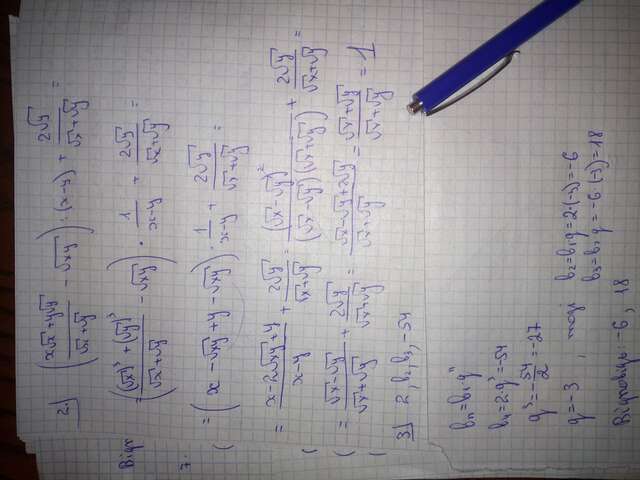 2.) ((x√x + y√y)/(√x + √y) - √xy) : (x-y) + 2√y/(√x + √y) =
= (((√x)³ + (√y)³)/(√x + √y) - √xy) · 1/(x-y) + 2√y/(√x + √y) =
= (x - √xy + y - √xy) · 1/(x-y) + 2√y/(√x + √y) =
= (x - 2√xy + y)/(x-y) + 2√y/(√x + √y) = (√x - √y)²/((√x - √y)(√x + √y)) + 2√y/(√x + √y) =
= (√x - √y)/(√x + √y) + 2√y/(√x + √y) = (√x - √y + 2√y)/(√x + √y) = (√x + √y)/(√x + √y) = 1
3.) 2, b₂, b₃, -54
bₙ = b₁·qⁿ
b₄ = 2·q³ = -54
q³ = -54/2 = -27
q = -3, тоді b₂ = b₁q = 2·(-3) = -6
b₃ = b₂q = -6·(-3) = 18
Відповідь: -6, 18
Відп
7.